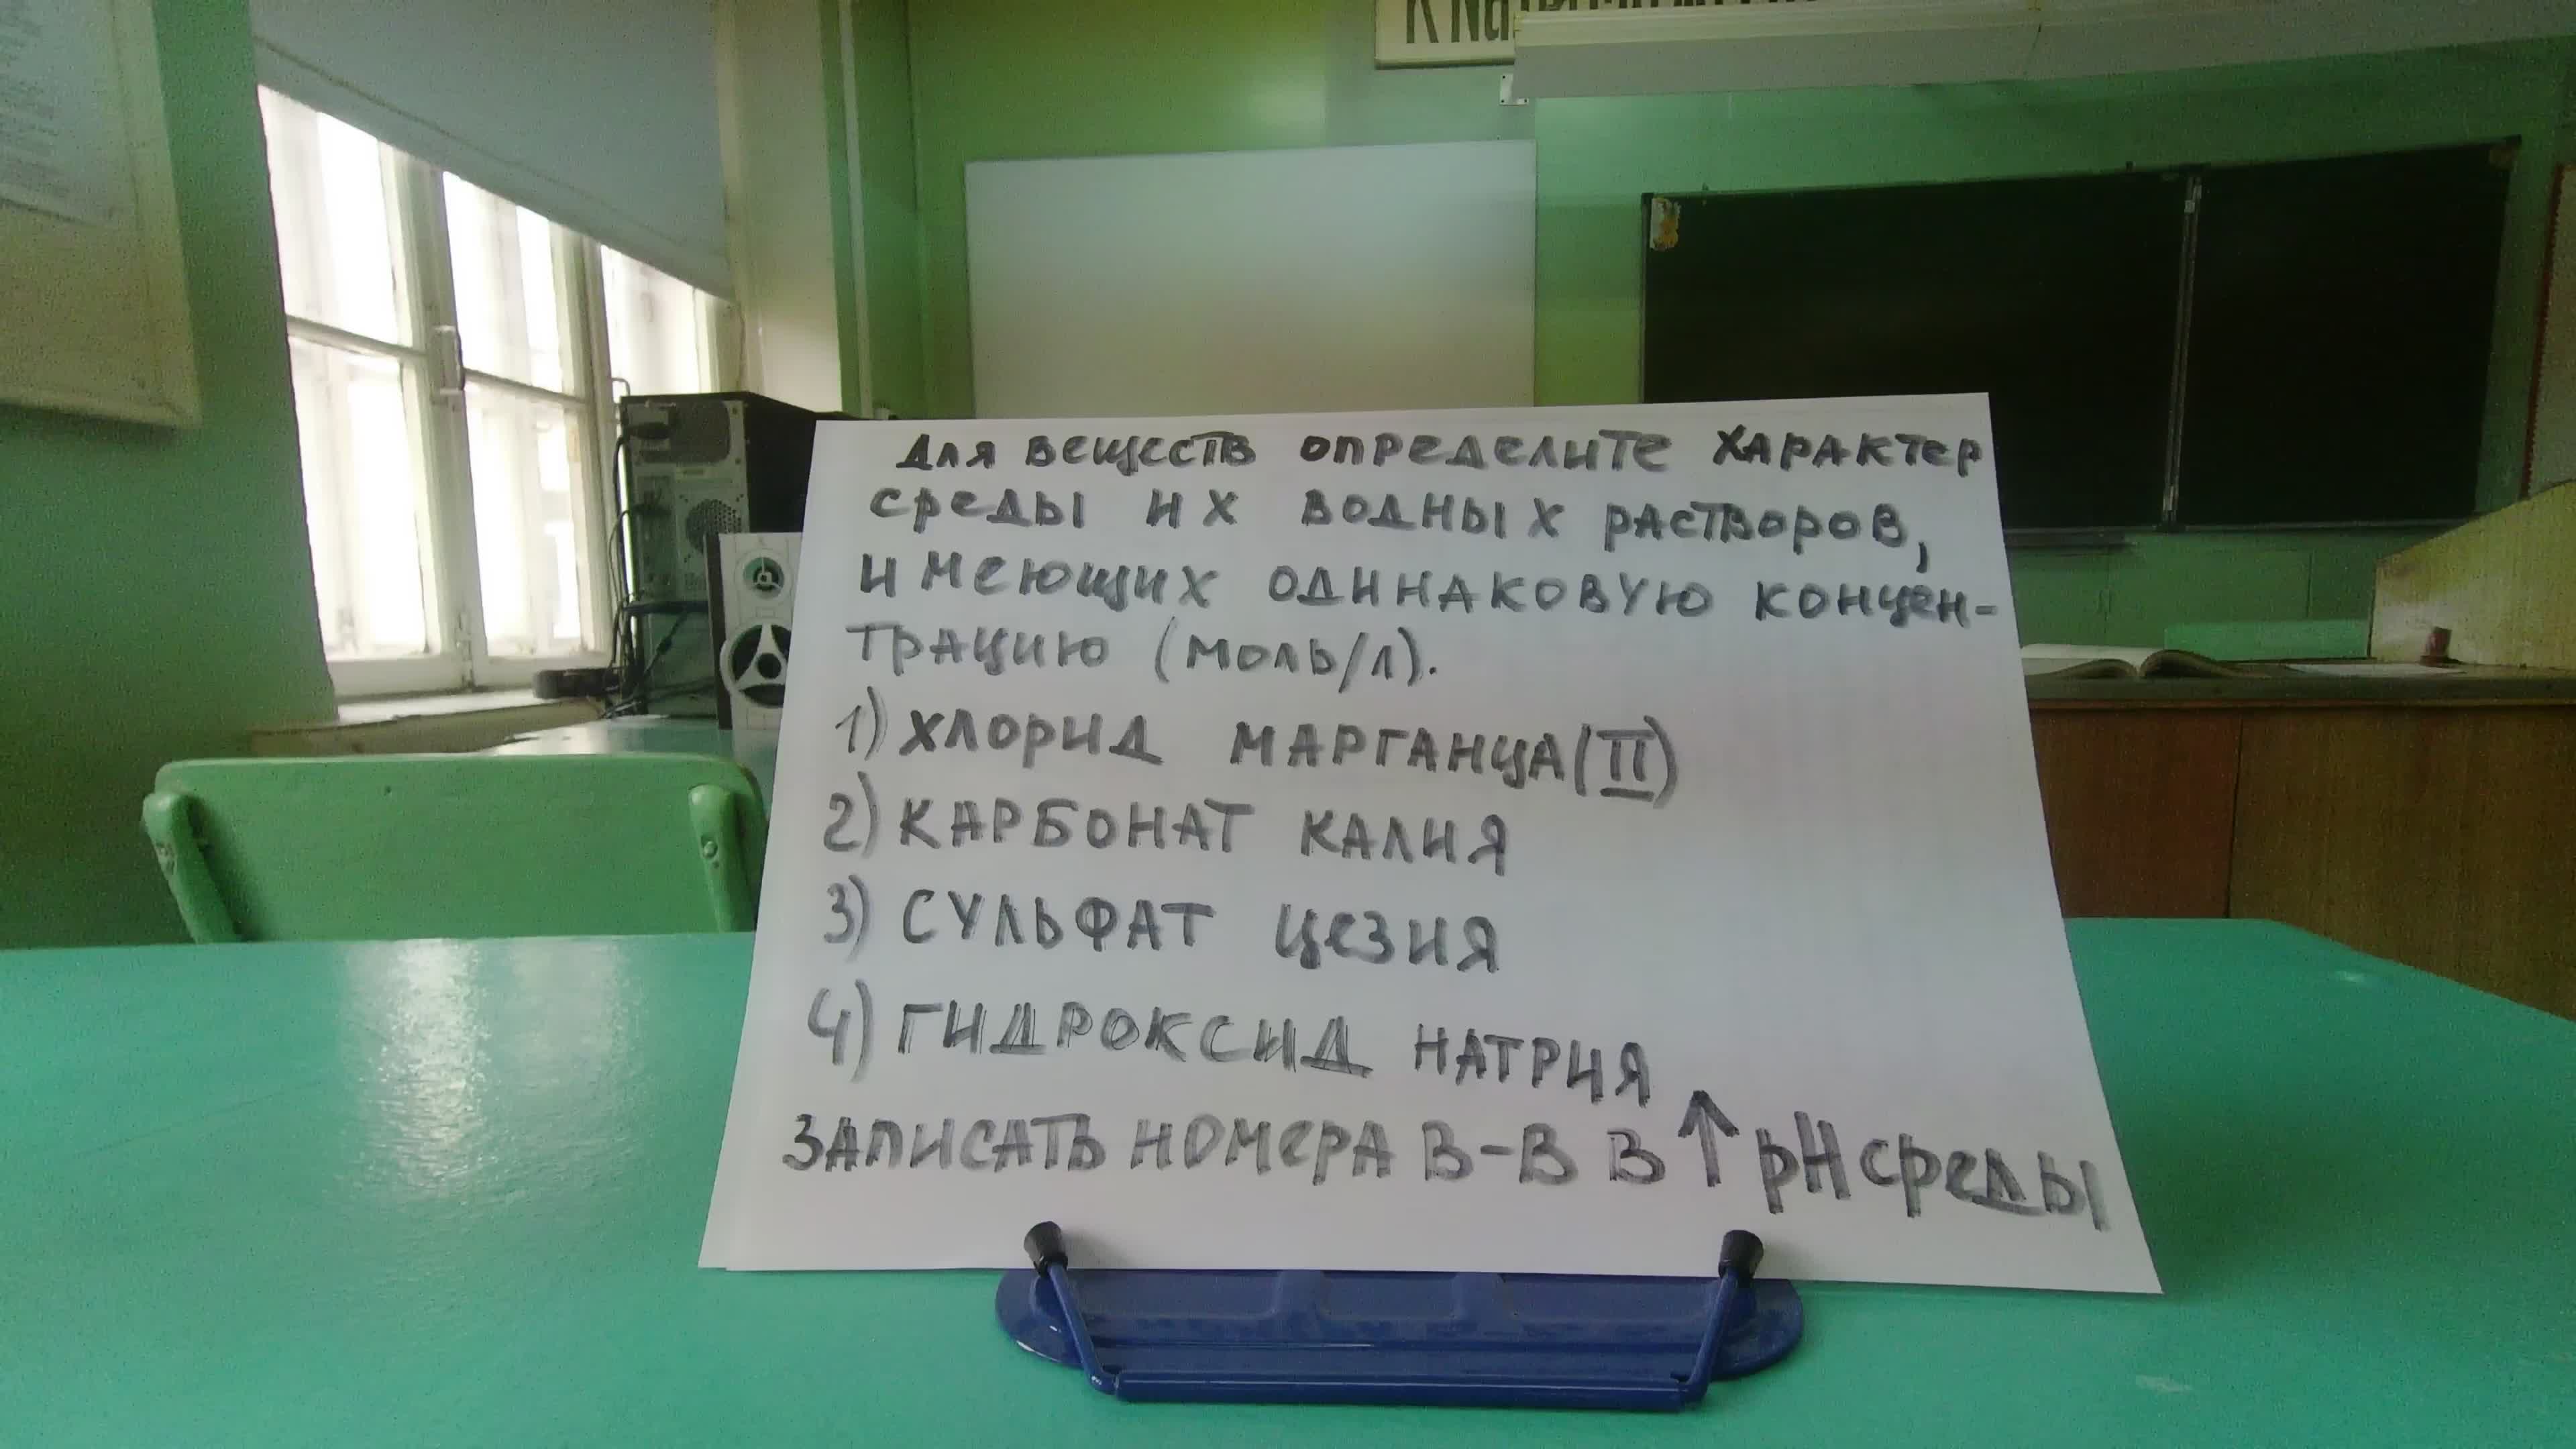 K Na
Для веществ определите характер
среды их водных растворов,
имеющих одинаковую концен-
трацию (моль/л).
1) хлорид марганца (II)
2) карбонат калия
3) сульфат цезия
4) гидроксид натрия
Записать номера в-в в ↑ pH среды